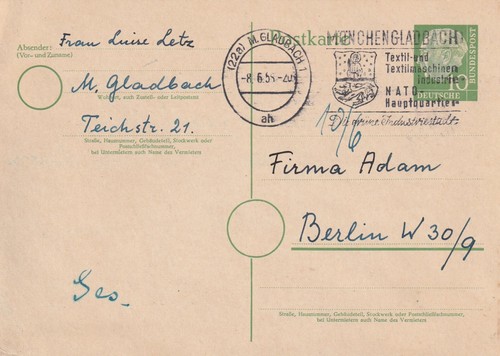 Absender:
(Vor- und Zuname)
Frau Luise Letz
M. Gladbach
Wohnort, auch Zustell- oder Leitpostamt
Teichstr. 21.
Straße, Hausnummer, Gebäudeteil, Stockwerk oder
Postschließfachnummer,
bei Untermietern auch Name des Vermieters
Postkarte
(22a) M. GLADBACH 1
-8.6.55.-20
ah
MÖNCHENGLADBACH
Textil-und
Textilmaschinen
Industrie
NATO
Hauptquartier
Die grüne Industriestadt
DEUTSCHE
BUNDESPOST
10
10/6
Firma Adam
Berlin W 30/9
Straße, Hausnummer, Gebäudeteil, Stockwerk oder Postschließfachnummer,
bei Untermietern auch Name des Vermieters
Ges.